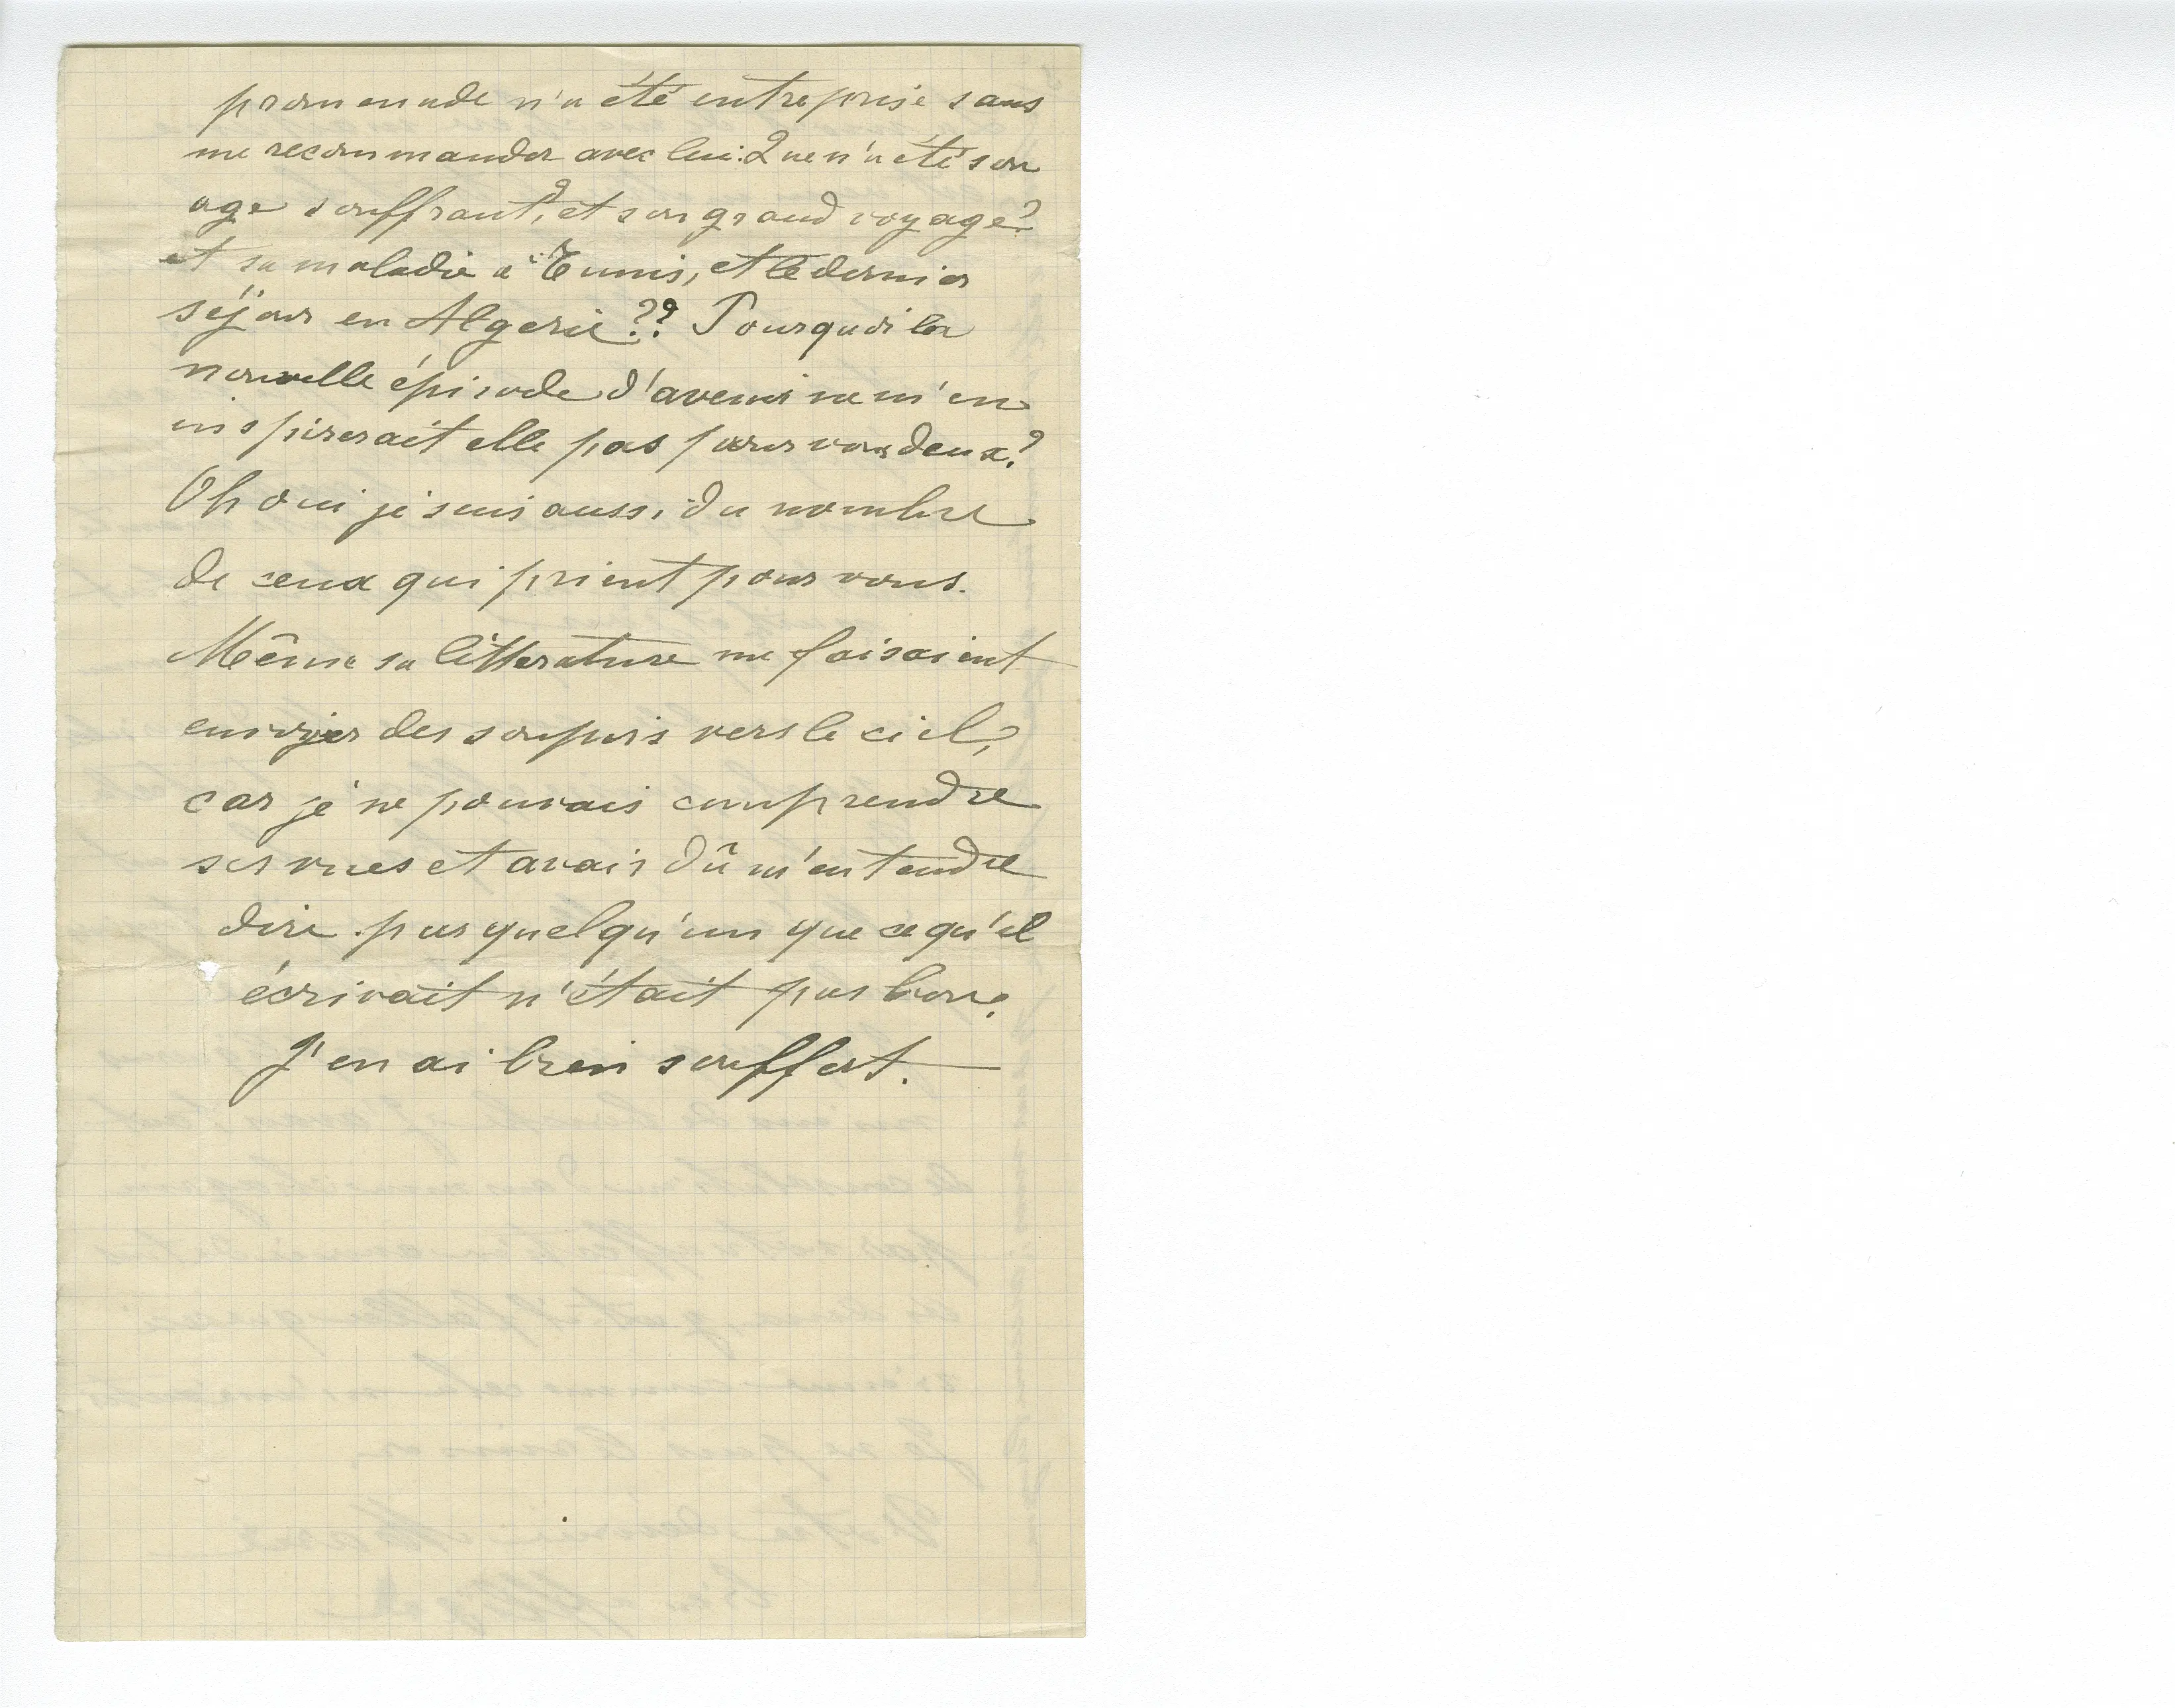 promenade n'a été entreprise sans
me recommander avec lui. Que n'a été son
age souffrant, et son grand voyage?
et sa maladie a Tunis, et le dernier
séjour en Algerie?? Pourquoi la
nouvelle épisode d'avenir ne m'en
inspirerait elle pas pour vous deux?
Oh oui je suis aussi du nombre
de ceux qui prient pour vous.
Même sa litterature me faisaient
envoyer des soupirs vers le ciel,
car je ne pouvais comprendre
ses vues et avais dû m'entendre
dire par quelqu'un que ce qu'il
écrivait n'était pas bon,
J'en ai bien souffert.